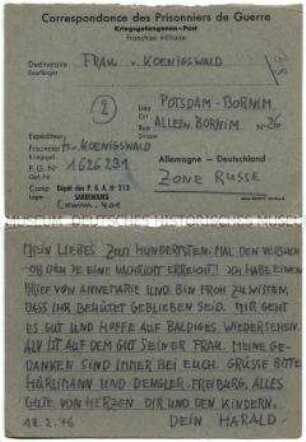 Correspondance des Prisonniers de Guerre
Kriegsgefangenen-Post
Franchise militaire
Destinataire
Empfänger
FRAU v. KOENIGSWALD
2
Lieu
Ort
POTSDAM-BORNIM
Rue
Strasse
ALLEE N. BORNIM N° 26
Expéditeur:
Prisonnier H. v. KOENIGSWALD
Kriegsgef.
P. G. N° 1626291
Gef. Nr.
Allemagne – Deutschland
ZONE RUSSE
Camp Dépôt des P.G.A. N° 213
Lager
Comm. 401
MUSEUM DEUTSCHES HISTORISCHES MUSEUM
MEIN LIEBES, ZUM HUNDERTSTEN MAL DEN VERSUCH
OB DICH JE EINE NACHRICHT ERREICHT! ICH HABE EINEN
BRIEF VON ANNEMARIE UND BIN FROH ZU WISSEN,
DASS IHR BEHÜTET GEBLIEBEN SEID. MIR GEHT
ES GUT UND HOFFE AUF BALDIGES WIEDERSEHEN.
ALV IST AUF DEM GUT SEINER FRAU. MEINE GE-
DANKEN SIND IMMER BEI EUCH. GRÜSSE BITTE
HÜRLIMANN UND DENGLER-FREIBURG. ALLES
GUTE VON HERZEN DIR UND DEN KINDERN.
18.2.46 DEIN HARALD.